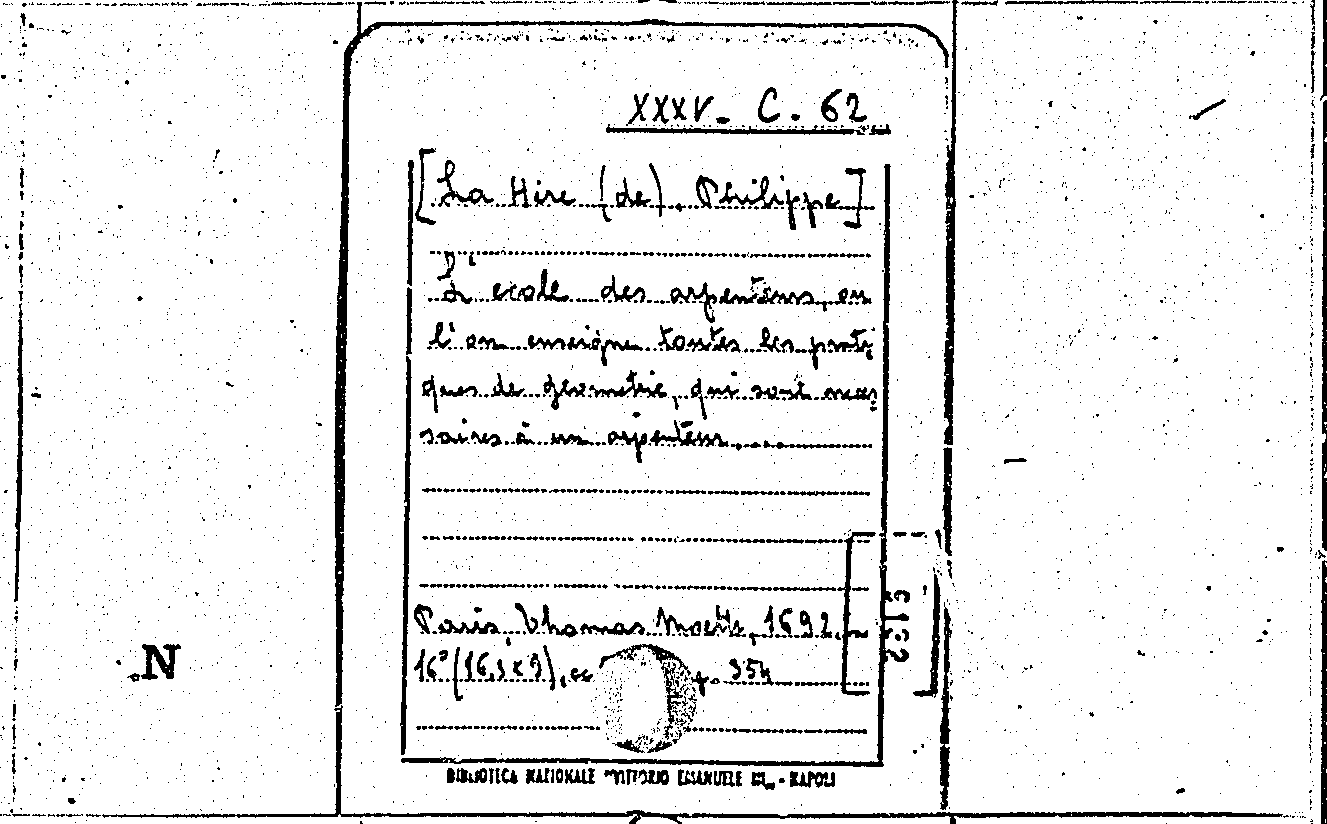 XXXV. C. 62
[La Hire (de). Philippe]
L'ecole des arpenteurs, ou
l'on enseigne toutes les prati-
ques de geometrie, qui sont neces-
saires à un arpenteur....
Paris Thomas Moette, 1692.
16° (16,5 x 9), cc p. 354
N
BIBLIOTECA NAZIONALE "VITTORIO EMANUELE III" - NAPOLI